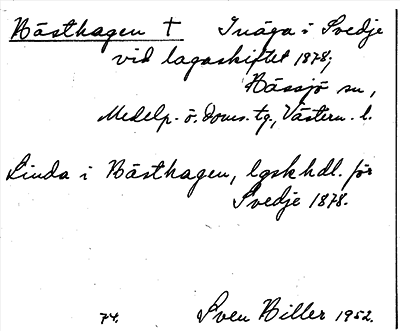 Bästhagen † Inäga i Svedje
vid lagaskiftet 1878;
Hässjö sn,
Medelp. ö. doms. tg., Västern. l.
Linda i Bästhagen, lgskhdl. för
Svedje 1878.
74. Sven Hiller 1952.